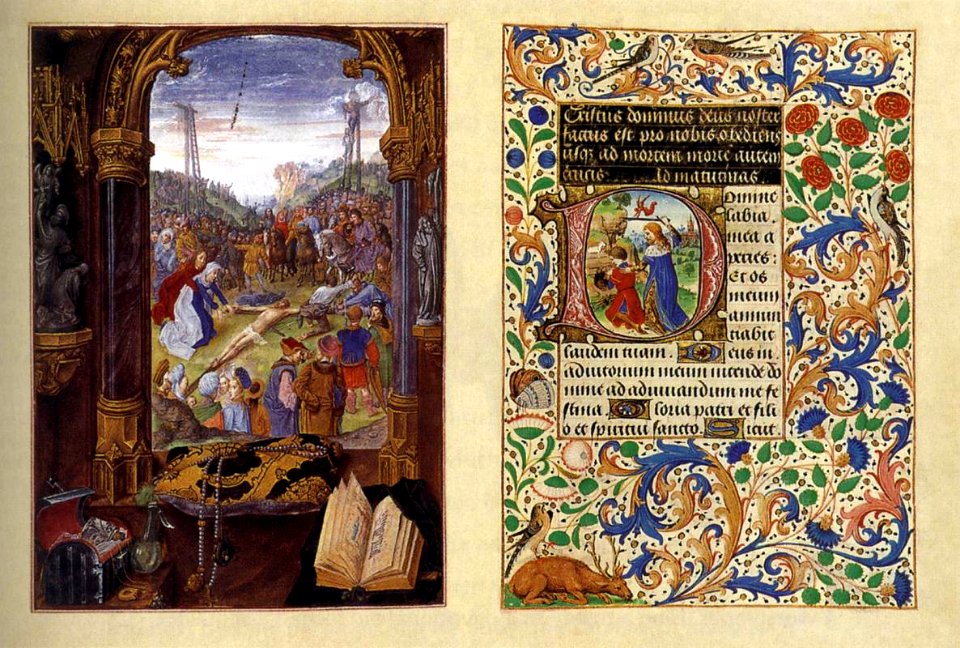 Xristus dominus deus noster
factus est pro nobis obediens
usqꝫ ad mortem morte autem
crucis. Ad matutinas
Domine
labia
mea a
peries:
Et os
meum
annun
tiabit
laudem tuam. Deus in
adiutorium meum intende do
mine ad adiuvandum me fe
stina. Gloria patri et fili
o et spiritui sancto. Sicut.